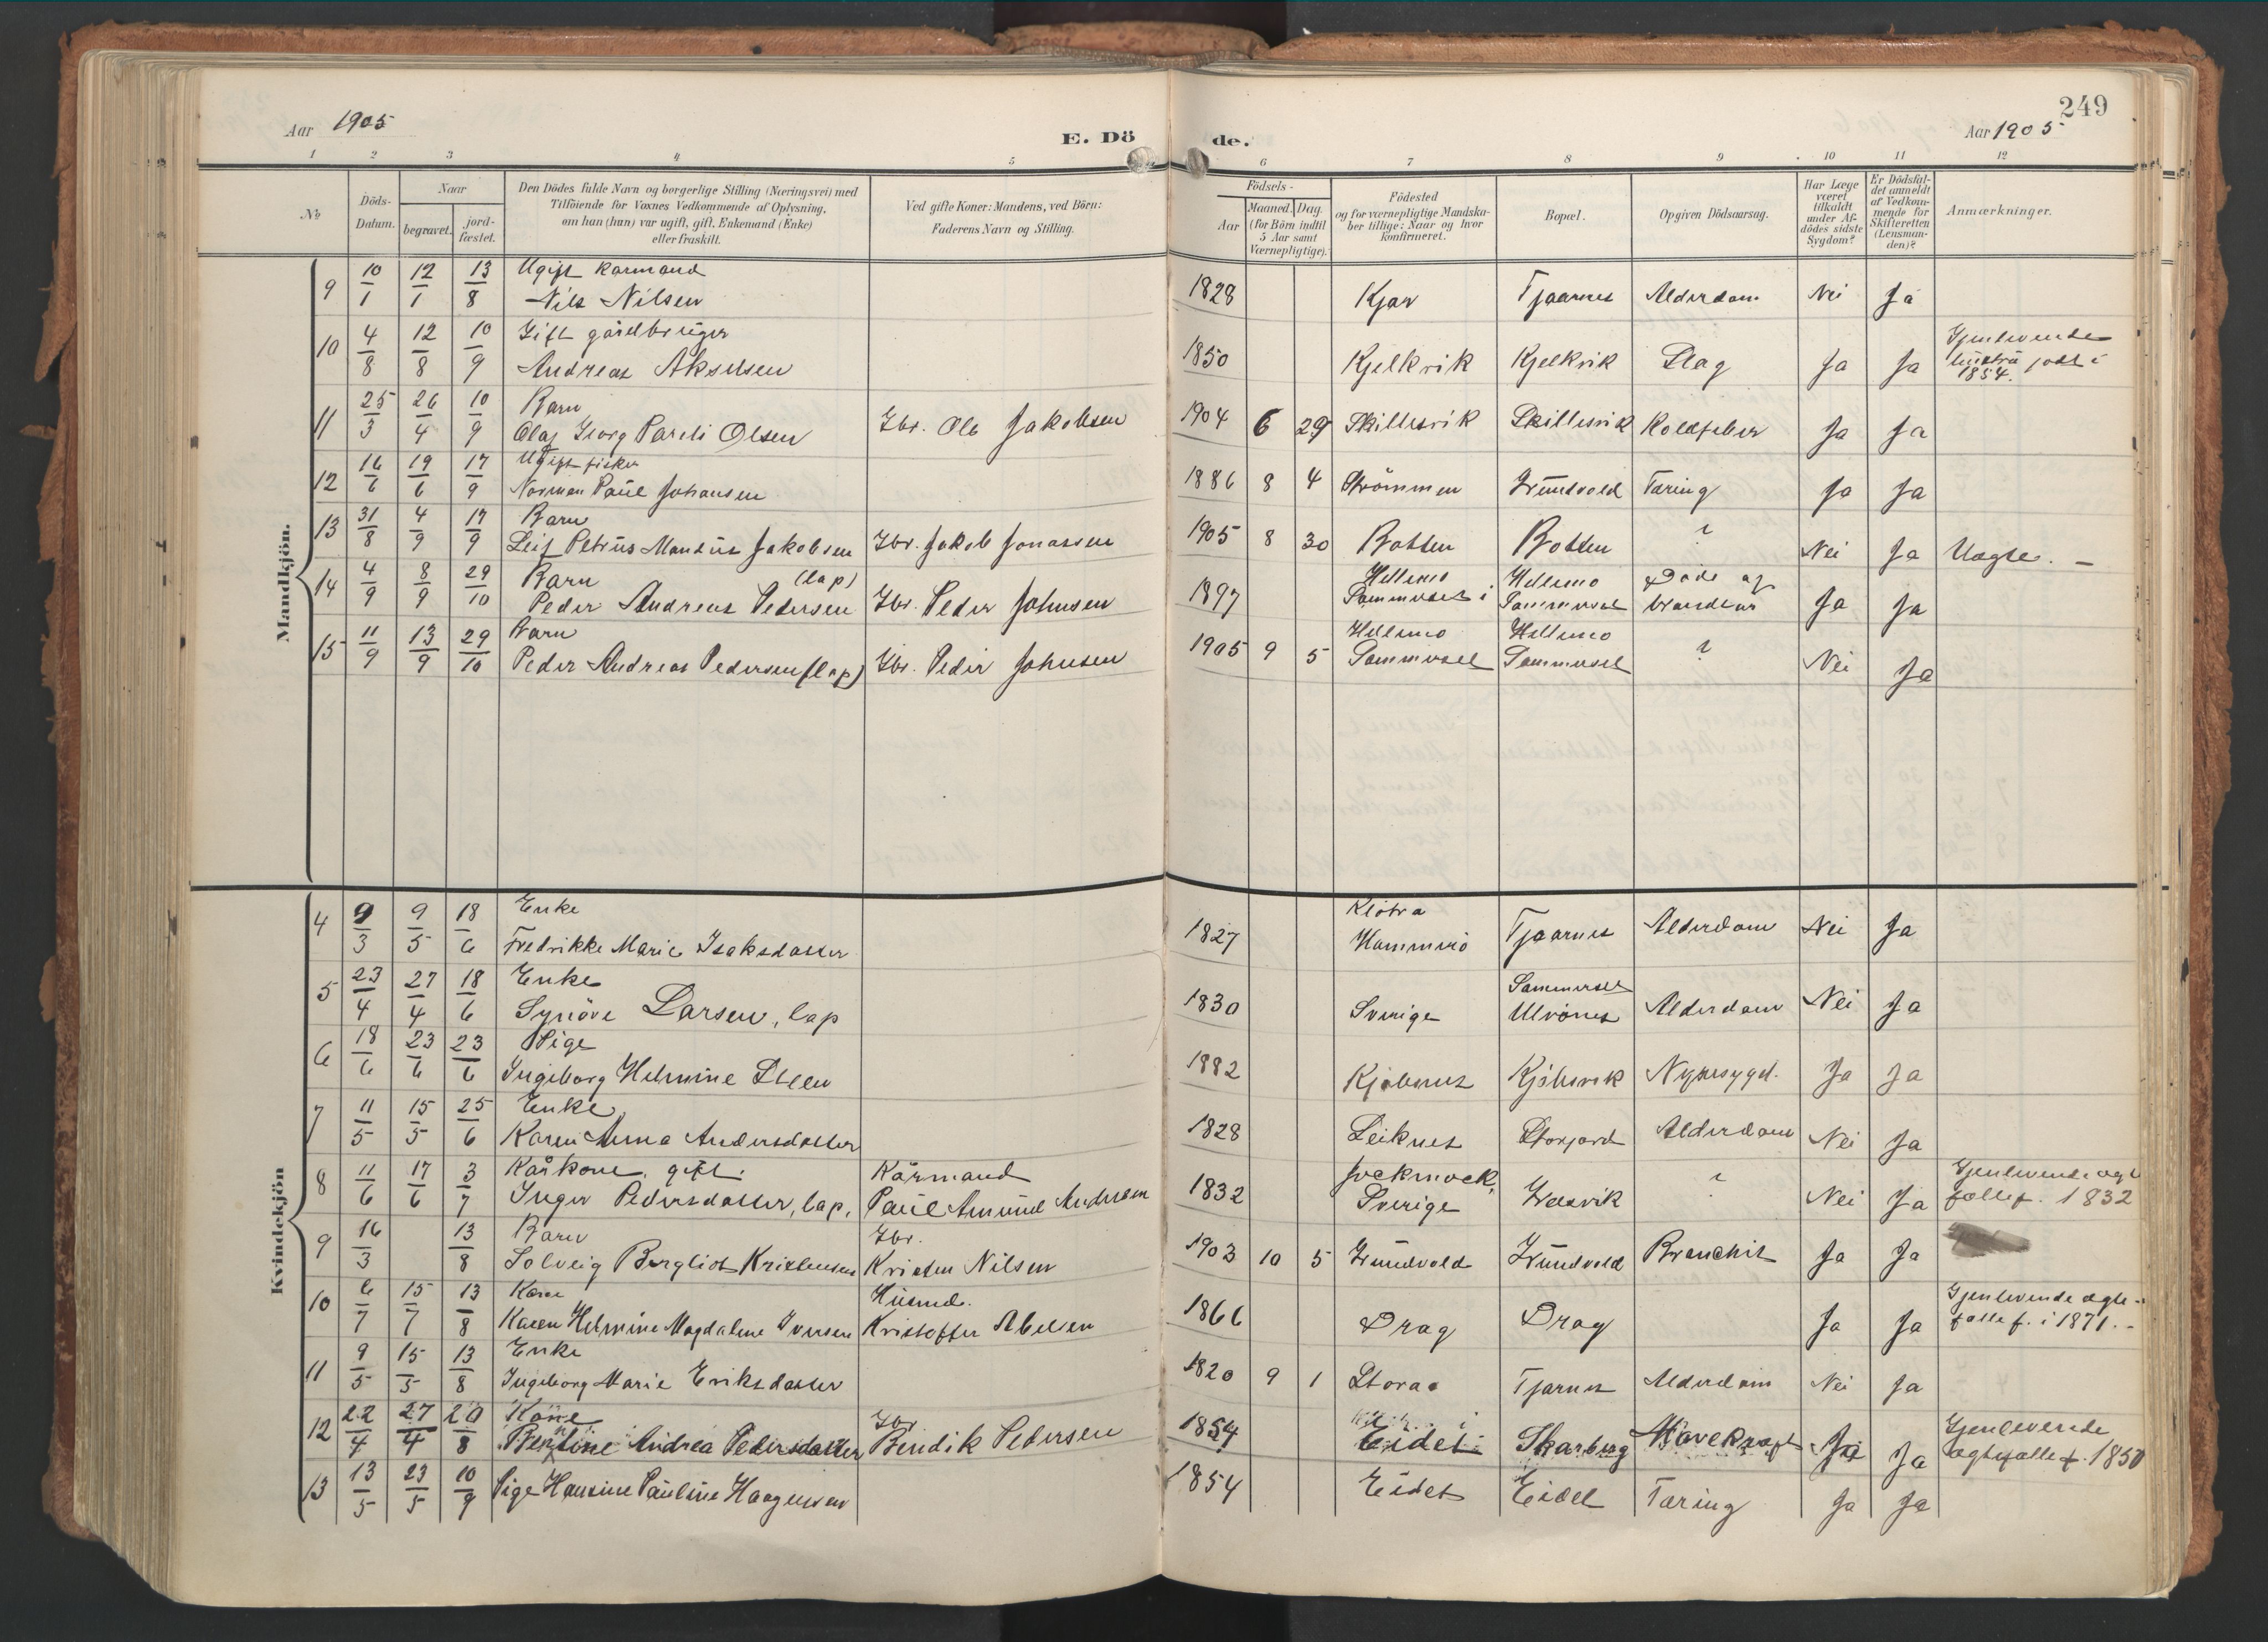 Aar 1905
E. Dö
de.
249
Aar 1905
1 2 3 4 5 6 7 8 9 10 11 12
No
Döds-Datum.
Naar
begravet.
jord-fæstet.
Den Dödes fulde Navn og borgerlige Stilling (Næringsvei) med
Tilföiende for Voxnes Vedkommende af Oplysning,
om han (hun) var ugift, gift, Enkemand (Enke)
eller fraskilt.
Ved gifte Koner: Mandens, ved Börn:
Faderens Navn og Stilling.
Födsels-
Aar
Maaned. Dag.
(for Börn indtil
5 Aar samt
Værnepligtige).
Födested
og for værnepligtige Mandska-
ber tillige: Naar og hvor
konfirmeret.
Bopæl.
Opgiven Dödsaarsag.
Har Læge
været
tilkaldt
under Af-
dödes sidste
Sygdom?
Er Dödsfal-
det anmeldt
af Vedkom-
mende for
Skifteretten
(Lensman-
den)?
Anmærkninger.
Mandkjön.
9 10/1 12/1 13/8 Ugift karmand
Nils Nilsen 1828 Kjær Tjaarnes Alderdom Nei Ja
10 4/8 12/8 10/9 Gift gårdbruger
Andreas Akselsen 1850 Kjelkvik Kjelkvik Slag Ja Ja Gjenlevende
hustru født i
1854.
11 25/3 26/4 10/9 Barn
Olaf Georg Pareli Olsen Gbr. Ole Jakobsen 1904 6 29 Skillesvik Skillesvik Koldfeber Ja Ja
12 16/6 19/6 17/9 Ugift fisker
Norman Paul Johansen 1886 8 4 Strömmen Grundvold Tæring Ja Ja
13 31/8 4/9 17/9 Barn
Leif Petrus Mandus Jakobsen Gbr. Jakob Jonassen 1905 8 30 Botten Botten ? Nei Ja Uægte. -
14 4/9 8/9 29/10 Barn (lap)
Peder Andreas Pedersen Gbr. Peder Johnsen 1897 Hellemo
Sommerset i Hellemo
Sommerset Døde af
brandsår Ja Ja
15 11/9 13/9 29/10 Barn
Peder Andreas Pedersen (lap) Gbr. Peder Johnsen 1905 9 5 Hellemo
Sommerset Hellemo
Sommerset ? Nei Ja
Kvindekjön
4 9/3 9/5 18/6 Enke
Fredrikke Marie Isaksdatter 1827 Kløtra
Hammerö Tjaarnes Alderdom Nei Ja
5 23/4 27/4 18/6 Enke
Synöve Larsen, lap 1830 Sverige Sommerset
Ulvönes Alderdom Nei Ja
6 18/6 23/6 23/6 Pige
Ingeborg Helmine Steen 1882 Kjöbsnes Kjöbsvik Nyresygd. Ja Ja
7 11/5 15/5 25/6 Enke
Karen Anna Andersdatter 1828 Leiknes Storjord Alderdom Nei Ja
8 11/6 17/6 3/7 Kårkone, gift.
Inger Pedersdatter, lap. Kårmand
Paul Amund Andersen 1832 Jockmock,
Sverige ? Nei Ja Gjenlevende ægte
fælle f. 1832
9 16/3 13/8 Barn
Solveig Bergliot Kristensen Gbr.
Kristen Nilsen 1903 10 5 Grundvold Grundvold Bronchit Ja Ja
10 6/7 15/7 13/8 Kone
Karen Helmine Magdalene Iversen Husmd.
Kristoffer Abelsen 1866 Drag Drag Ja Ja Gjenlevende ægte-
fælle f. i 1871. -
11 9/5 15/5 13/8 Enke
Ingeborg Marie Eriksdatter 1820 9 1 Storaa Tjarnes Alderdom Nei Ja
12 22/4 27/4 20/8 Kone
Andrea Pedersdatter Gbr
Bendik Pedersen 1854 Eidet Skarberg Mavekræft Ja Ja Gjenlevende
ægtefælle f. 1850
13 13/5 23/5 10/9 Pige Hansine Pauline Haagensen 1854 Eidet Eidet Tæring Ja Ja